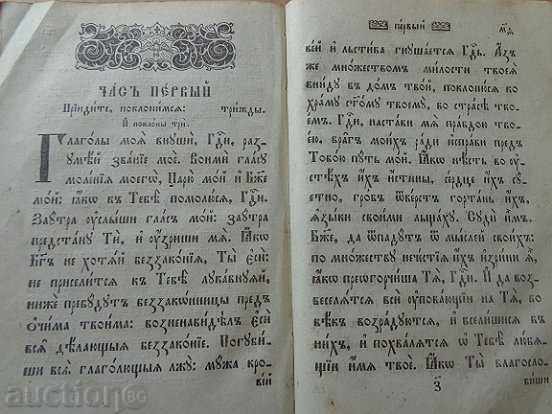 ЧАСЪ ПЕРВЫЙ
Прїидите, поклонимсѧ: трижды.
И поклоны три.
Глаголы моѧ внꙋши, Гд҇и, раз-
ꙋмѣй званїе мое. Вонми гласꙋ
моленїѧ моегѡ, Царю мой и Бж҃е
мой: ꙗкѡ къ Тебѣ помолюсѧ, Гд҇и.
Заꙋтра ᲂуслыши гласъ мой: заꙋтра
предстанꙋ Ти, и ᲂузриши мѧ. Ꙗкѡ
Бг҃ъ не хотѧй беззаконїѧ, Ты єси:
не приселитсѧ къ Тебѣ лꙋкавнꙋѧй,
ниже пребꙋдꙋтъ беззаконницы предъ
ѻчима твоима: возненавидѣлъ єси
всѧ дѣлающыѧ беззаконїе. Погꙋби-
ши всѧ глаголющыѧ лжꙋ: мꙋжа кро-
вей
первый
м҃д
вей и льстива гнꙋшаетсѧ Гд҇ь. Азъ
же множествомъ милости твоеѧ
внидꙋ въ домъ твой, поклонюсѧ ко
храмꙋ ст҃омꙋ твоемꙋ, во страсѣ тво-
емъ. Гд҇и, настави мѧ правдою твоею
ею, врагъ моихъ ради исправи предъ
Тобою пꙋть мой. Ꙗкѡ нѣсть во ᲂу-
стѣхъ ихъ истины, сердце ихъ сꙋ-
етно, гробъ ѿверстъ гортань ихъ,
ꙗзыки своими льщахꙋ. Сꙋди имъ
Бж҃е, да ѿпадꙋтъ ѿ мыслей своихъ:
по множествꙋ нечестїѧ ихъ изрини ѧ,
ꙗкѡ преогорчиша Тѧ, Гд҇и. И да воз-
веселѧтсѧ вси ᲂуповающїи на Тѧ, во
вѣкъ возрадꙋютсѧ, и вселишисѧ въ
нихъ, и похвалѧтсѧ ѡ Тебѣ любѧ-
щїи имѧ твое. Ꙗкѡ Ты благосло-
виши
auction BG